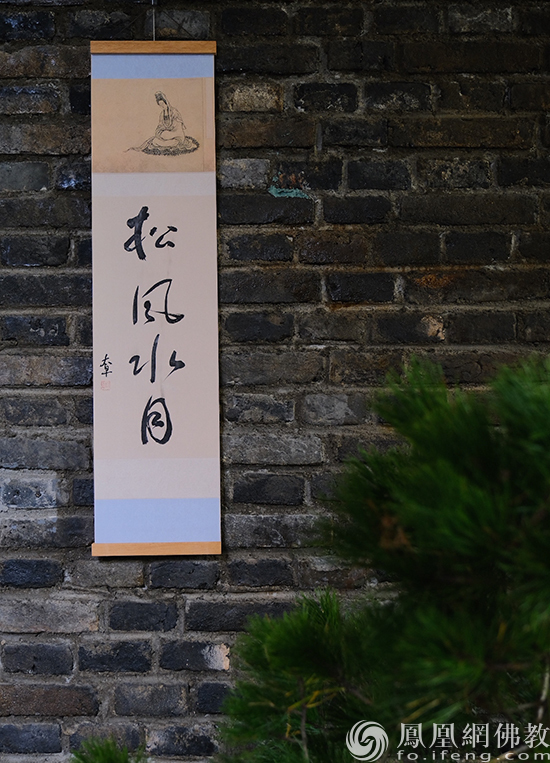 松風水月
鳳凰網佛教
fo.ifeng.com